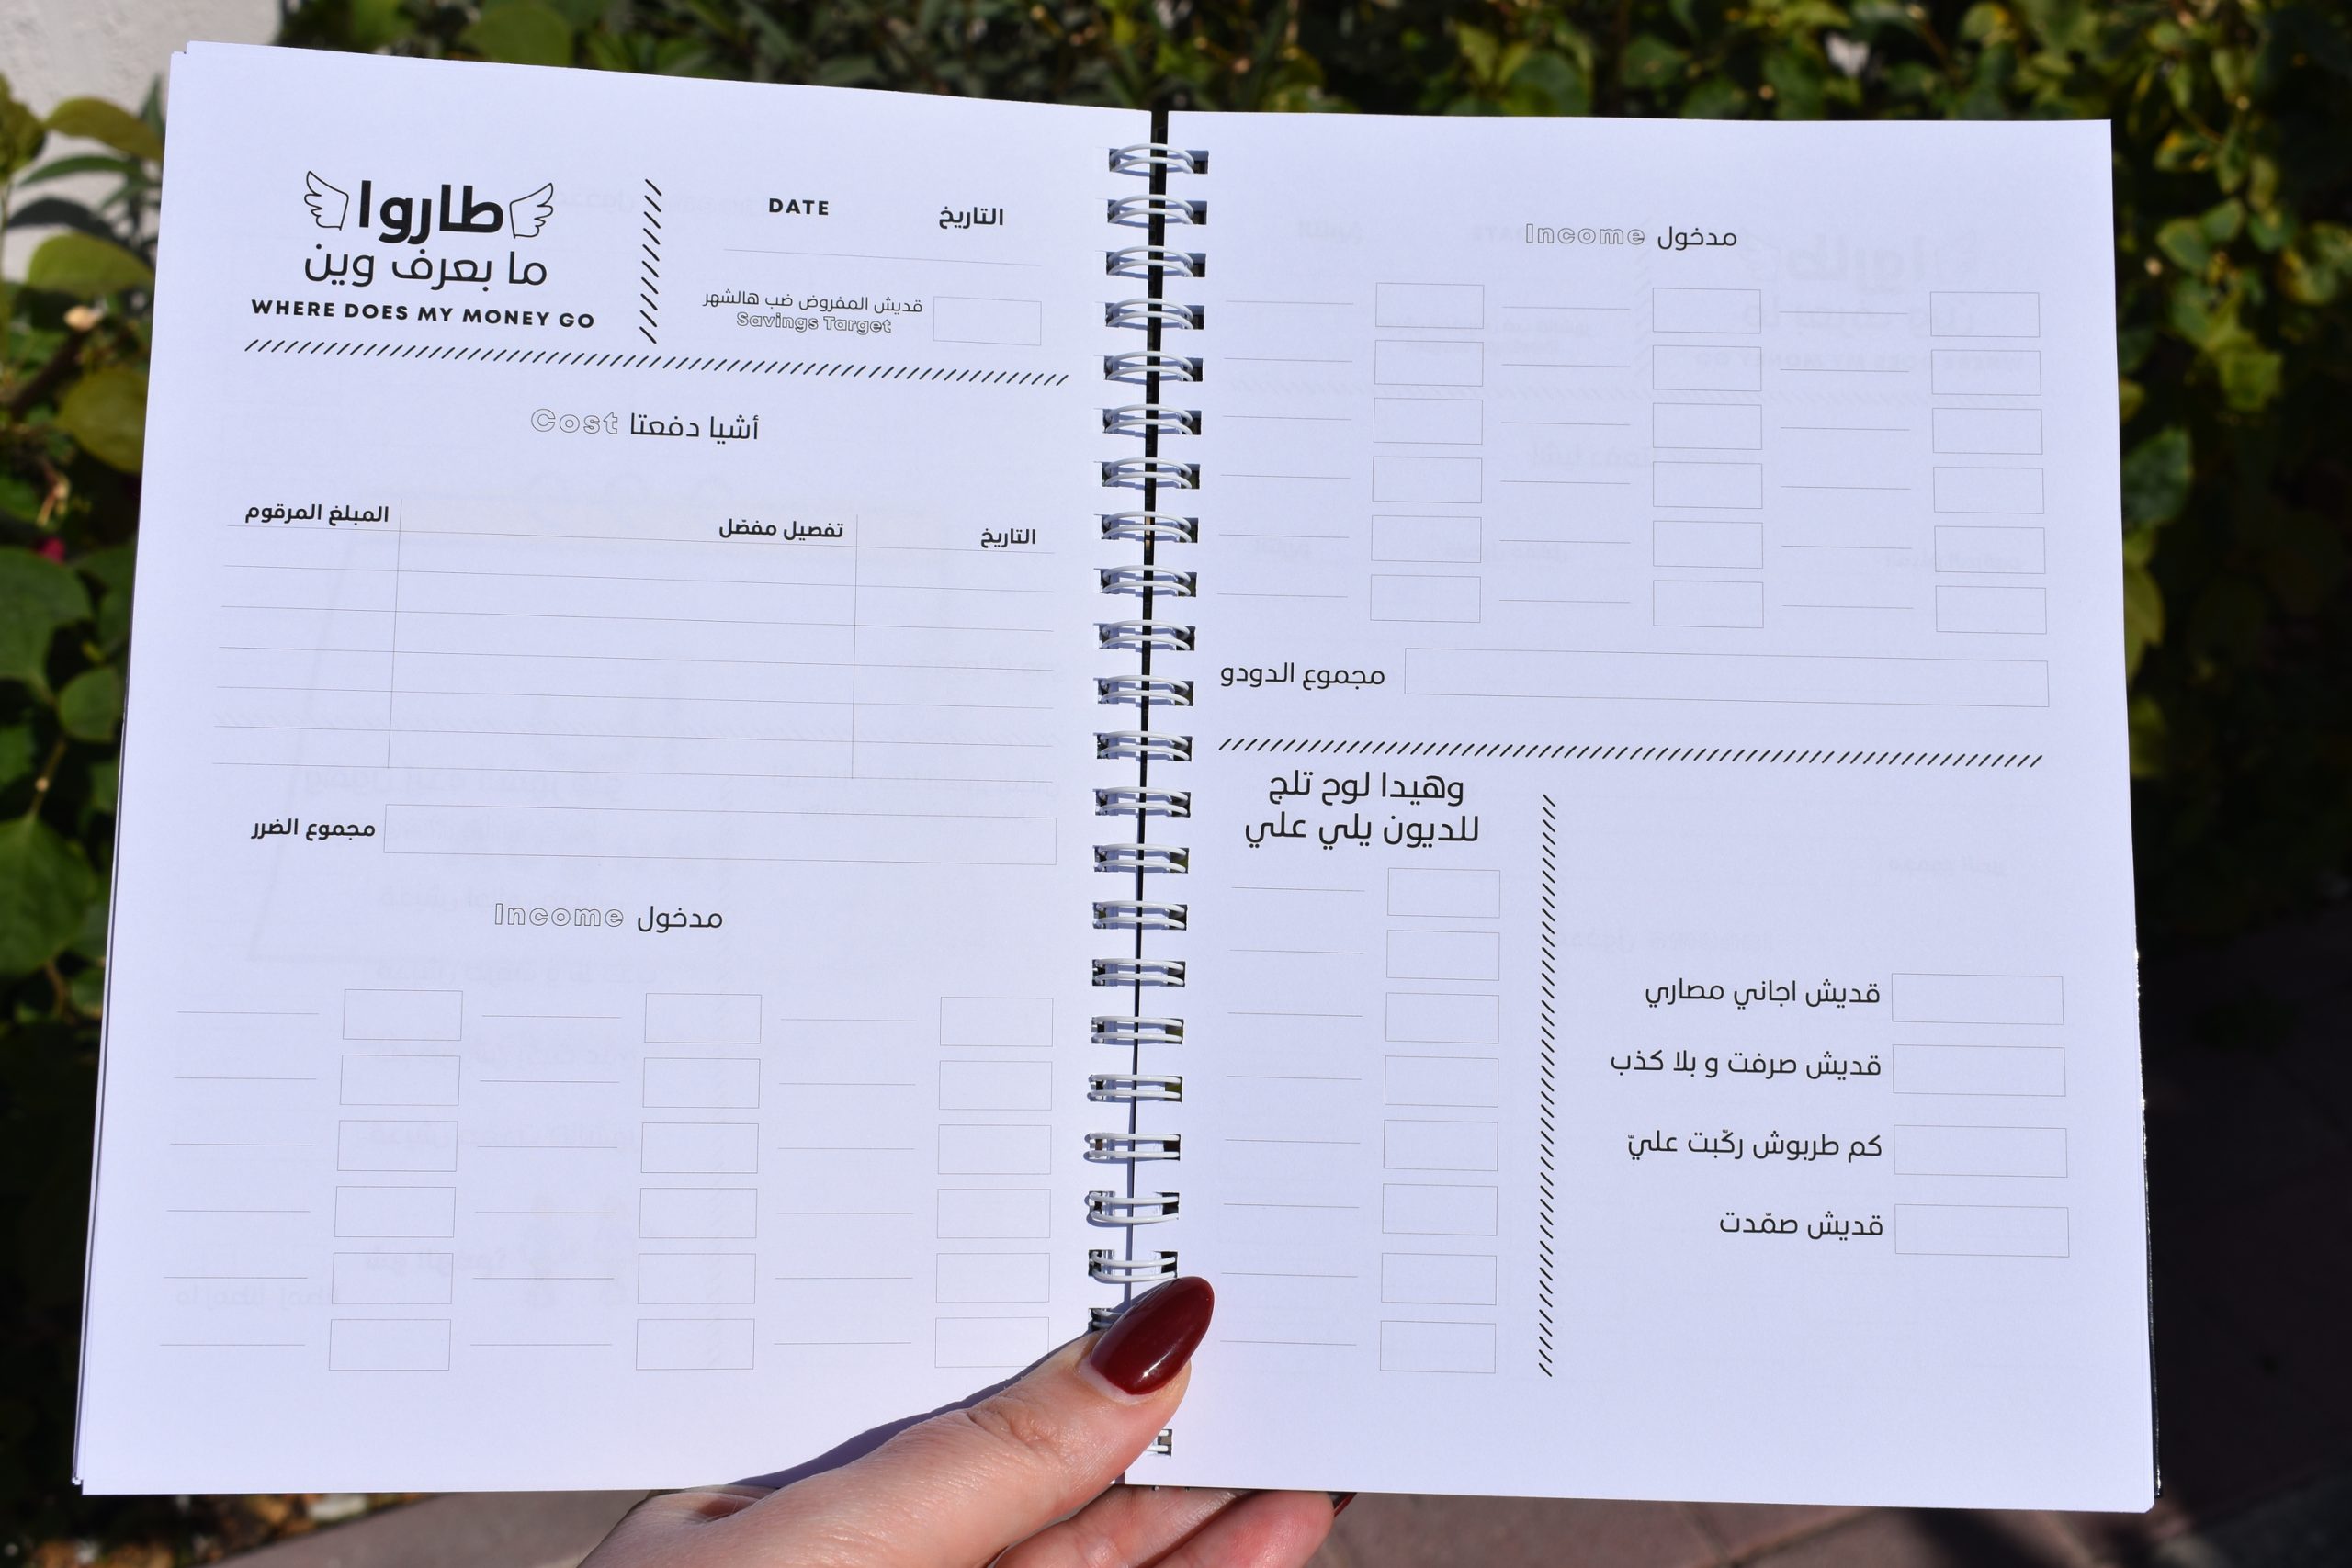 طاروا
ما بعرف وين
WHERE DOES MY MONEY GO
DATE التاريخ
قديش المفروض ضب هالشهر
Savings Target
أشيا دفعتا Cost
التاريخ تفصيل مفصّل المبلغ المرقوم
مجموع الضرر
مدخول Income
مدخول Income
مجموع الدودو
وهيدا لوح تلج
للديون يلي علي
قديش اجاني مصاري
قديش صرفت و بلا كذب
كم طربوش ركّبت عليّ
قديش صمّدت